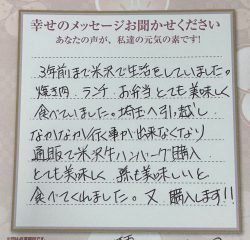 幸せのメッセージお聞かせください
あなたの声が、私達の元気の素です!
3年前まで米沢で生活をしていました。
焼き肉 ランチ お弁当とても美味しく
食べていました。埼玉へ引っ越し
なかなか行く事が出来なくなり
通販で米沢牛ハンバーグ購入
とても美味しく 孫も美味しいと
食べてくれました。又 購入します!!